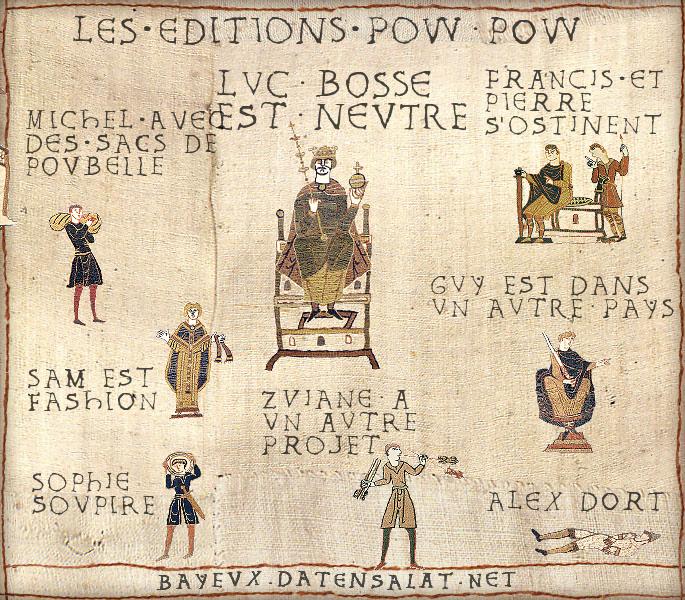 LES·EDITIONS·POW·POW
LVC·BOSSE
EST·NEVTRE
FRANCIS·ET
PIERRE
S'OSTINENT
MICHEL·AVEC
DES·SACS DE
POVBELLE
GVY EST DANS
VN AVTRE·PAYS
SAM EST
FASHION
ZVIANE·A
VN AVTRE
PROJET
SOPHIE
SOVPIRE
ALEX DORT
BAYEVX.DATENSALAT.NET